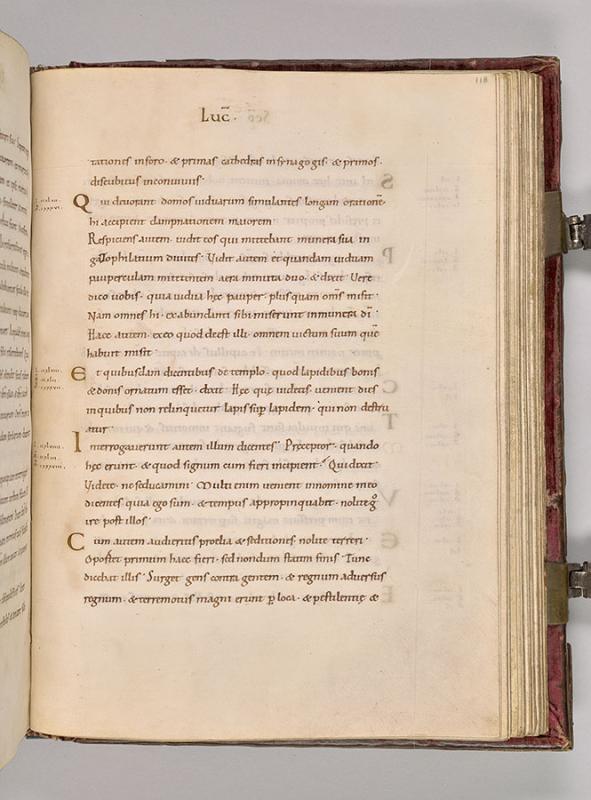 118
Luc̄ ·
tationes in foro · & primas cathedras in synagogis · & primos
discubitus in conviviis ·
Qui devorant domos viduarum simulantes longam orationē ·
hi accipient dampnationem maiorem
Respiciens autem · vidit eos qui mittebant munera sua in
gazophilatium divites · Vidit autem et quandam viduam
pauperculam mittentem aera minuta duo · & dixit Vere
dico vobis · quia vidua hęc pauper · plus quam oms̄ misit ·
Nam omnes hi · ex abundanti sibi miserunt in munera dī ·
Haec autem · ex eo quod deest illi · omnem victum suum quē
habuit misit ·
Et quibusdam dicentibus de templo · quod lapidibus bonis
& donis ornatum esset · dixit · Hęc quę videtis · venient dies
in quibus non relinquetur lapis sup̄ lapidem · qui non destru
atur ·
Interrogaverunt autem illum dicentes · Preceptor · quando
hęc erunt · & quod signum cum fieri incipient · Qui dixit ·
Videte · ne seducamini · Multi enim venient in nomine meo
dicentes quia ego sum · & tempus appropinquabit · nolite g̊
ire post illos ·
Cum autem audieritis proelia & seditiones · nolite terreri ·
Oportet primum haec fieri · sed nondum statim finis · Tunc
dicebat illis · Surget gens contra gentem · & regnum adversus
regnum · & terremotus magni erunt p̱ loca · & pestilentię &